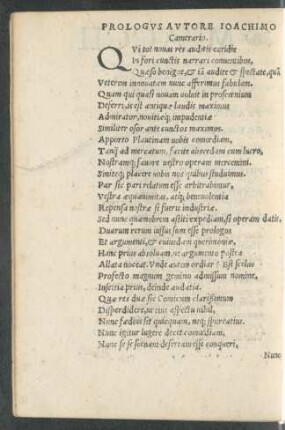 PROLOGVS AVTORE IOACHIMO
Camerario.
QVi tot nouas res auditis cottidie
In fori cunctis narrari conuentibus,
Quæso benigne, & iã audite & spectate, quã
Veterem innouatam nunc afferimus fabulam.
Quam qui quasi nouam uoluit in proscenium
Deferri, is est antiquæ laudis maximus
Admirator, nouitiæq; impudentiæ
Similiter osor ante cunctos maxumos.
Apporto Plautinam uobis comœdiam,
Tanq̃ ad mercatum, facite abscedam cum lucro,
Nostramq; fauore uestro operam mercemini.
Siniteq; placere uobis nos quibus studuimus.
Par sic pari relatum esse arbitrabimur,
Vestræ æquanimitati, atq; beneuolentia
Repensa nostræ si fuerit industriæ.
Sed nunc quamobrem astiti expediam, si operam datis.
Duarum rerum iussus sum esse prologus
Et argumenti, & cuiusdam querimoniæ,
Hanc prius absoluam, et argumento postea
Allata nouitas. Vnde autem ordiar? Est scelus
Profecto magnum gemino admissum nomine,
Inscitia prius, deinde audatia.
Quæ res duæ sic Comicum clarissimum
Disperdidere, ut eius aspectu nihil,
Nunc fœdius sit quicquam, neq; spurcatius.
Nunc igitur lugere decet comœdiam,
Nunc se se solam desertam esse conqueri,
Nunc